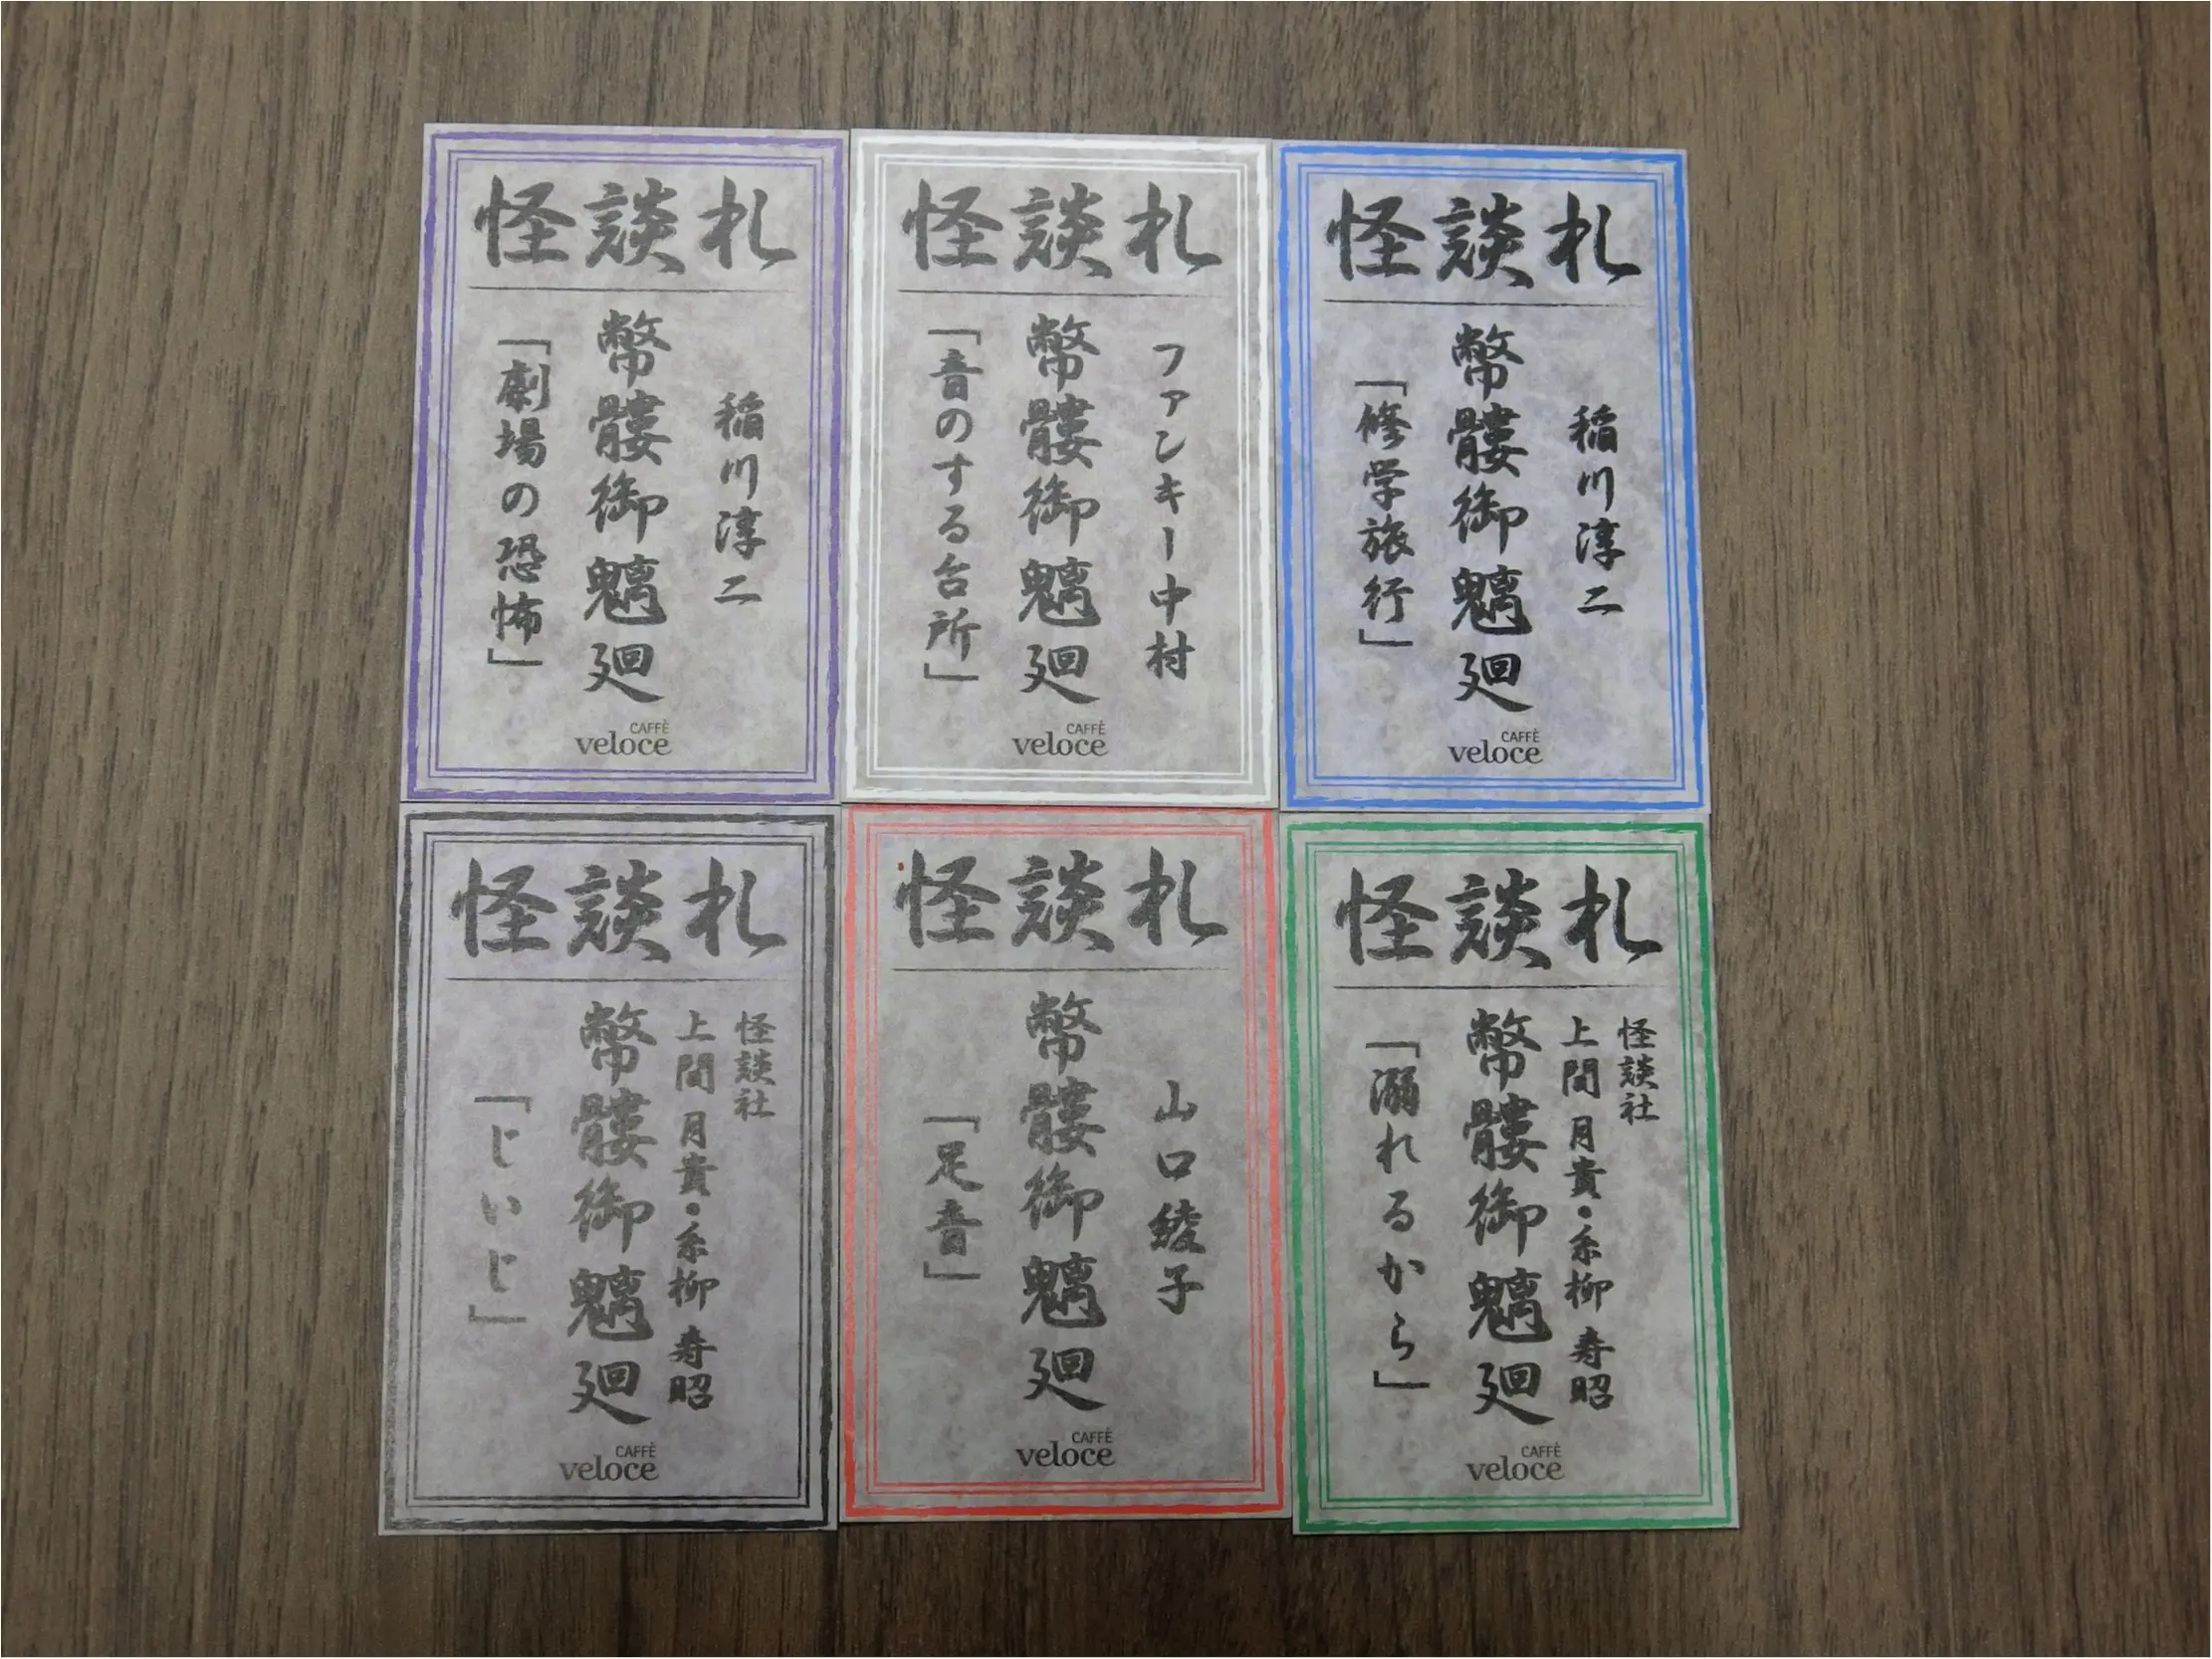 怪談札
稲川淳二
幣髏御魑廻
「劇場の恐怖」
CAFFÈ
veloce
怪談札
ファンキー中村
幣髏御魑廻
「音のする台所」
CAFFÈ
veloce
怪談札
稲川淳二
幣髏御魑廻
「修学旅行」
CAFFÈ
veloce
怪談札
怪談社
上間 月貴・糸柳 寿昭
幣髏御魑廻
「じいじ」
CAFFÈ
veloce
怪談札
山口綾子
幣髏御魑廻
「足音」
CAFFÈ
veloce
怪談札
怪談社
上間 月貴・糸柳 寿昭
幣髏御魑廻
「溺れるから」
CAFFÈ
veloce